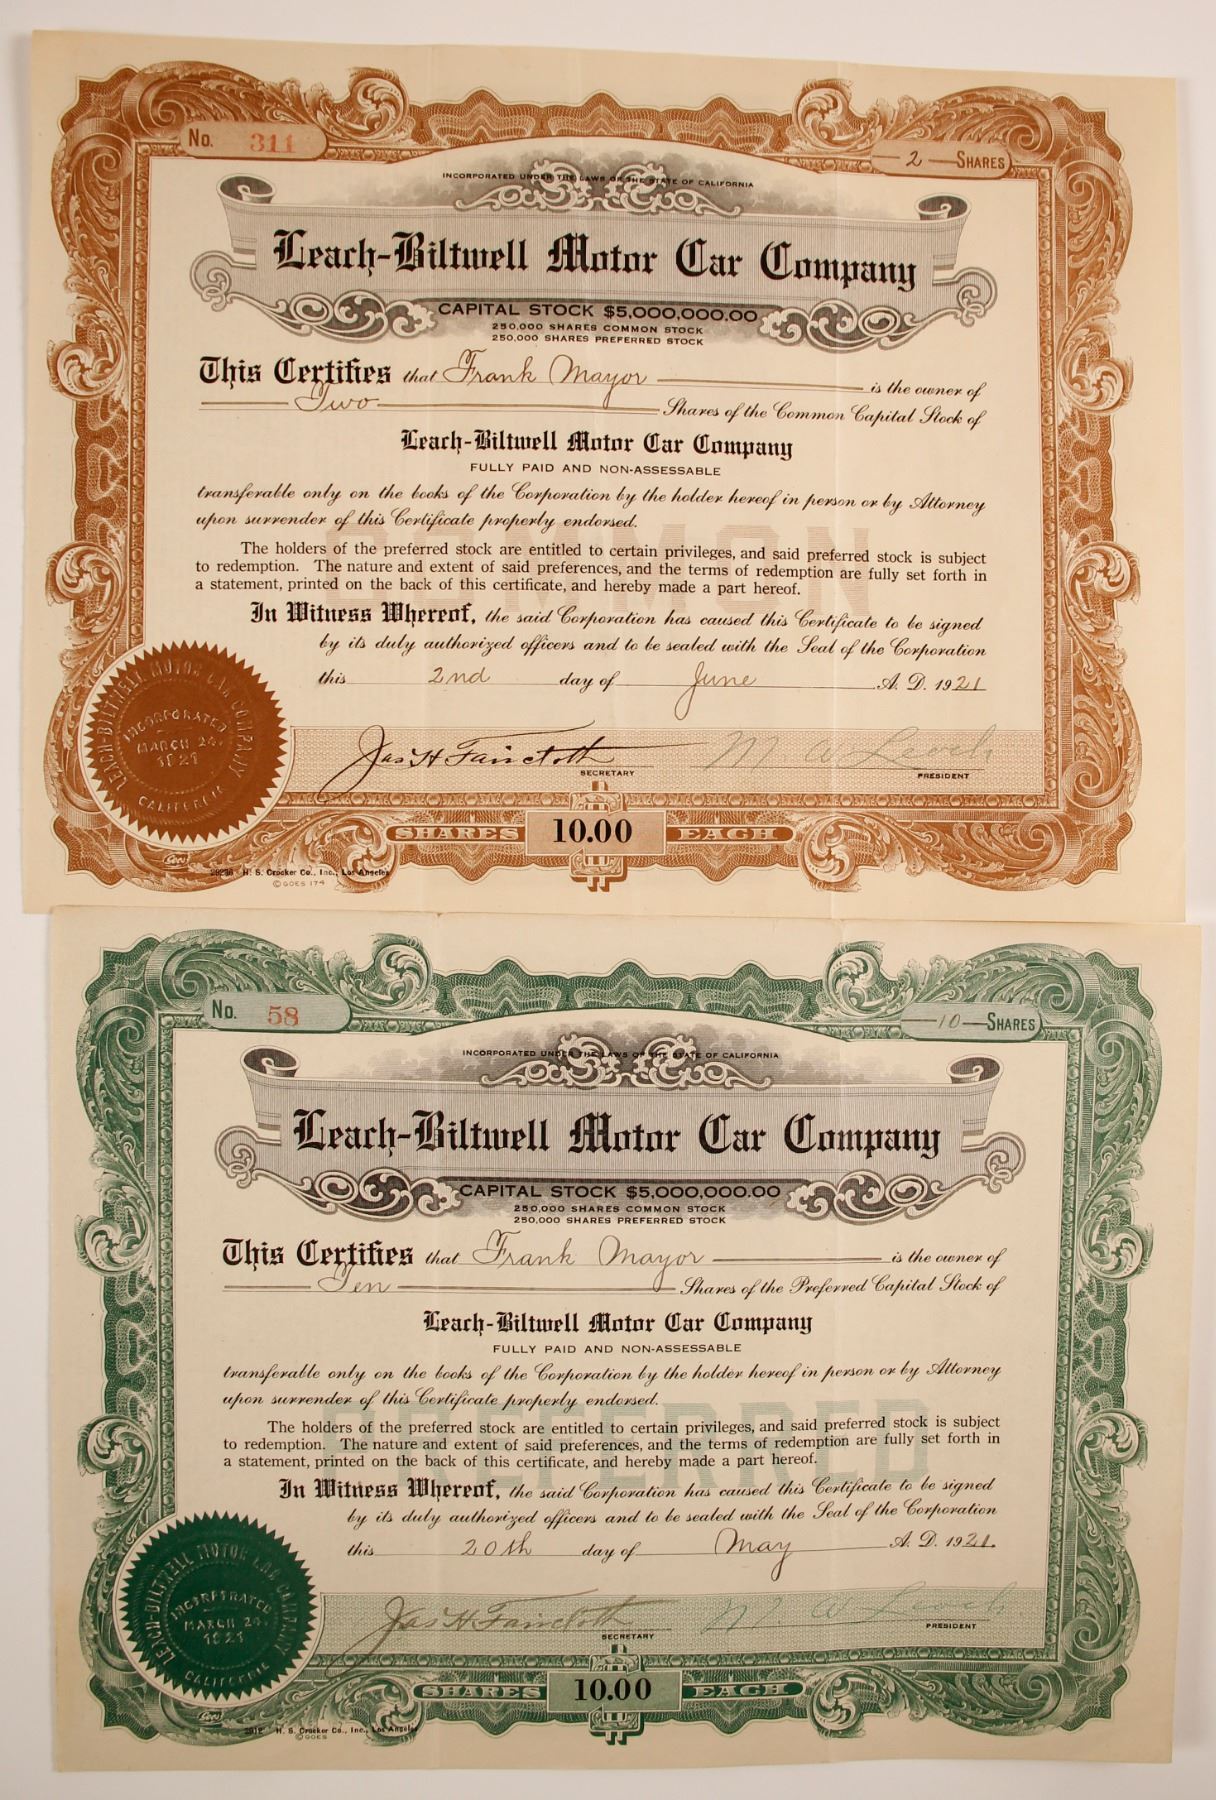 No. 311
2 SHARES
INCORPORATED UNDER THE LAWS OF THE STATE OF CALIFORNIA
Leach-Biltwell Motor Car Company
CAPITAL STOCK $5,000,000.00
250,000 SHARES COMMON STOCK
250,000 SHARES PREFERRED STOCK
This Certifies that Frank Mayor is the owner of
Two Shares of the Common Capital Stock of
Leach-Biltwell Motor Car Company
FULLY PAID AND NON-ASSESSABLE
transferable only on the books of the Corporation by the holder hereof in person or by Attorney
upon surrender of this Certificate properly endorsed.
COMMON
The holders of the preferred stock are entitled to certain privileges, and said preferred stock is subject
to redemption. The nature and extent of said preferences, and the terms of redemption are fully set forth in
a statement, printed on the back of this certificate, and hereby made a part hereof.
In Witness Whereof, the said Corporation has caused this Certificate to be signed
by its duly authorized officers and to be sealed with the Seal of the Corporation
this 2nd day of June A. D. 1921
LEACH-BILTWELL MOTOR CAR COMPANY
INCORPORATED
MARCH 24,
1921
CALIFORNIA
Jas H Faircloth
SECRETARY
M W Leach
PRESIDENT
SHARES 10.00 EACH
Goes
29236 H. S. Crocker Co., Inc., Los Angeles
© GOES 174
No. 58
10 SHARES
INCORPORATED UNDER THE LAWS OF THE STATE OF CALIFORNIA
Leach-Biltwell Motor Car Company
CAPITAL STOCK $5,000,000.00
250,000 SHARES COMMON STOCK
250,000 SHARES PREFERRED STOCK
This Certifies that Frank Mayor is the owner of
Ten Shares of the Preferred Capital Stock of
Leach-Biltwell Motor Car Company
FULLY PAID AND NON-ASSESSABLE
transferable only on the books of the Corporation by the holder hereof in person or by Attorney
upon surrender of this Certificate properly endorsed.
PREFERRED
The holders of the preferred stock are entitled to certain privileges, and said preferred stock is subject
to redemption. The nature and extent of said preferences, and the terms of redemption are fully set forth in
a statement, printed on the back of this certificate, and hereby made a part hereof.
In Witness Whereof, the said Corporation has caused this Certificate to be signed
by its duly authorized officers and to be sealed with the Seal of the Corporation
this 20th day of May A. D. 1921.
LEACH-BILTWELL MOTOR CAR COMPANY
INCORPORATED
MARCH 24,
1921
CALIFORNIA
Jas H Faircloth
SECRETARY
M. W Leach
PRESIDENT
SHARES 10.00 EACH
Goes
H. S. Crocker Co., Inc., Los Angeles
© GOES